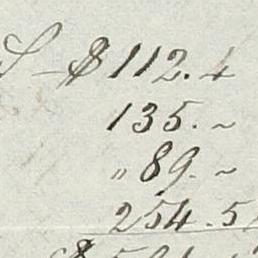 S – $112.4
135. ~
„ 89. ~
254.5
$